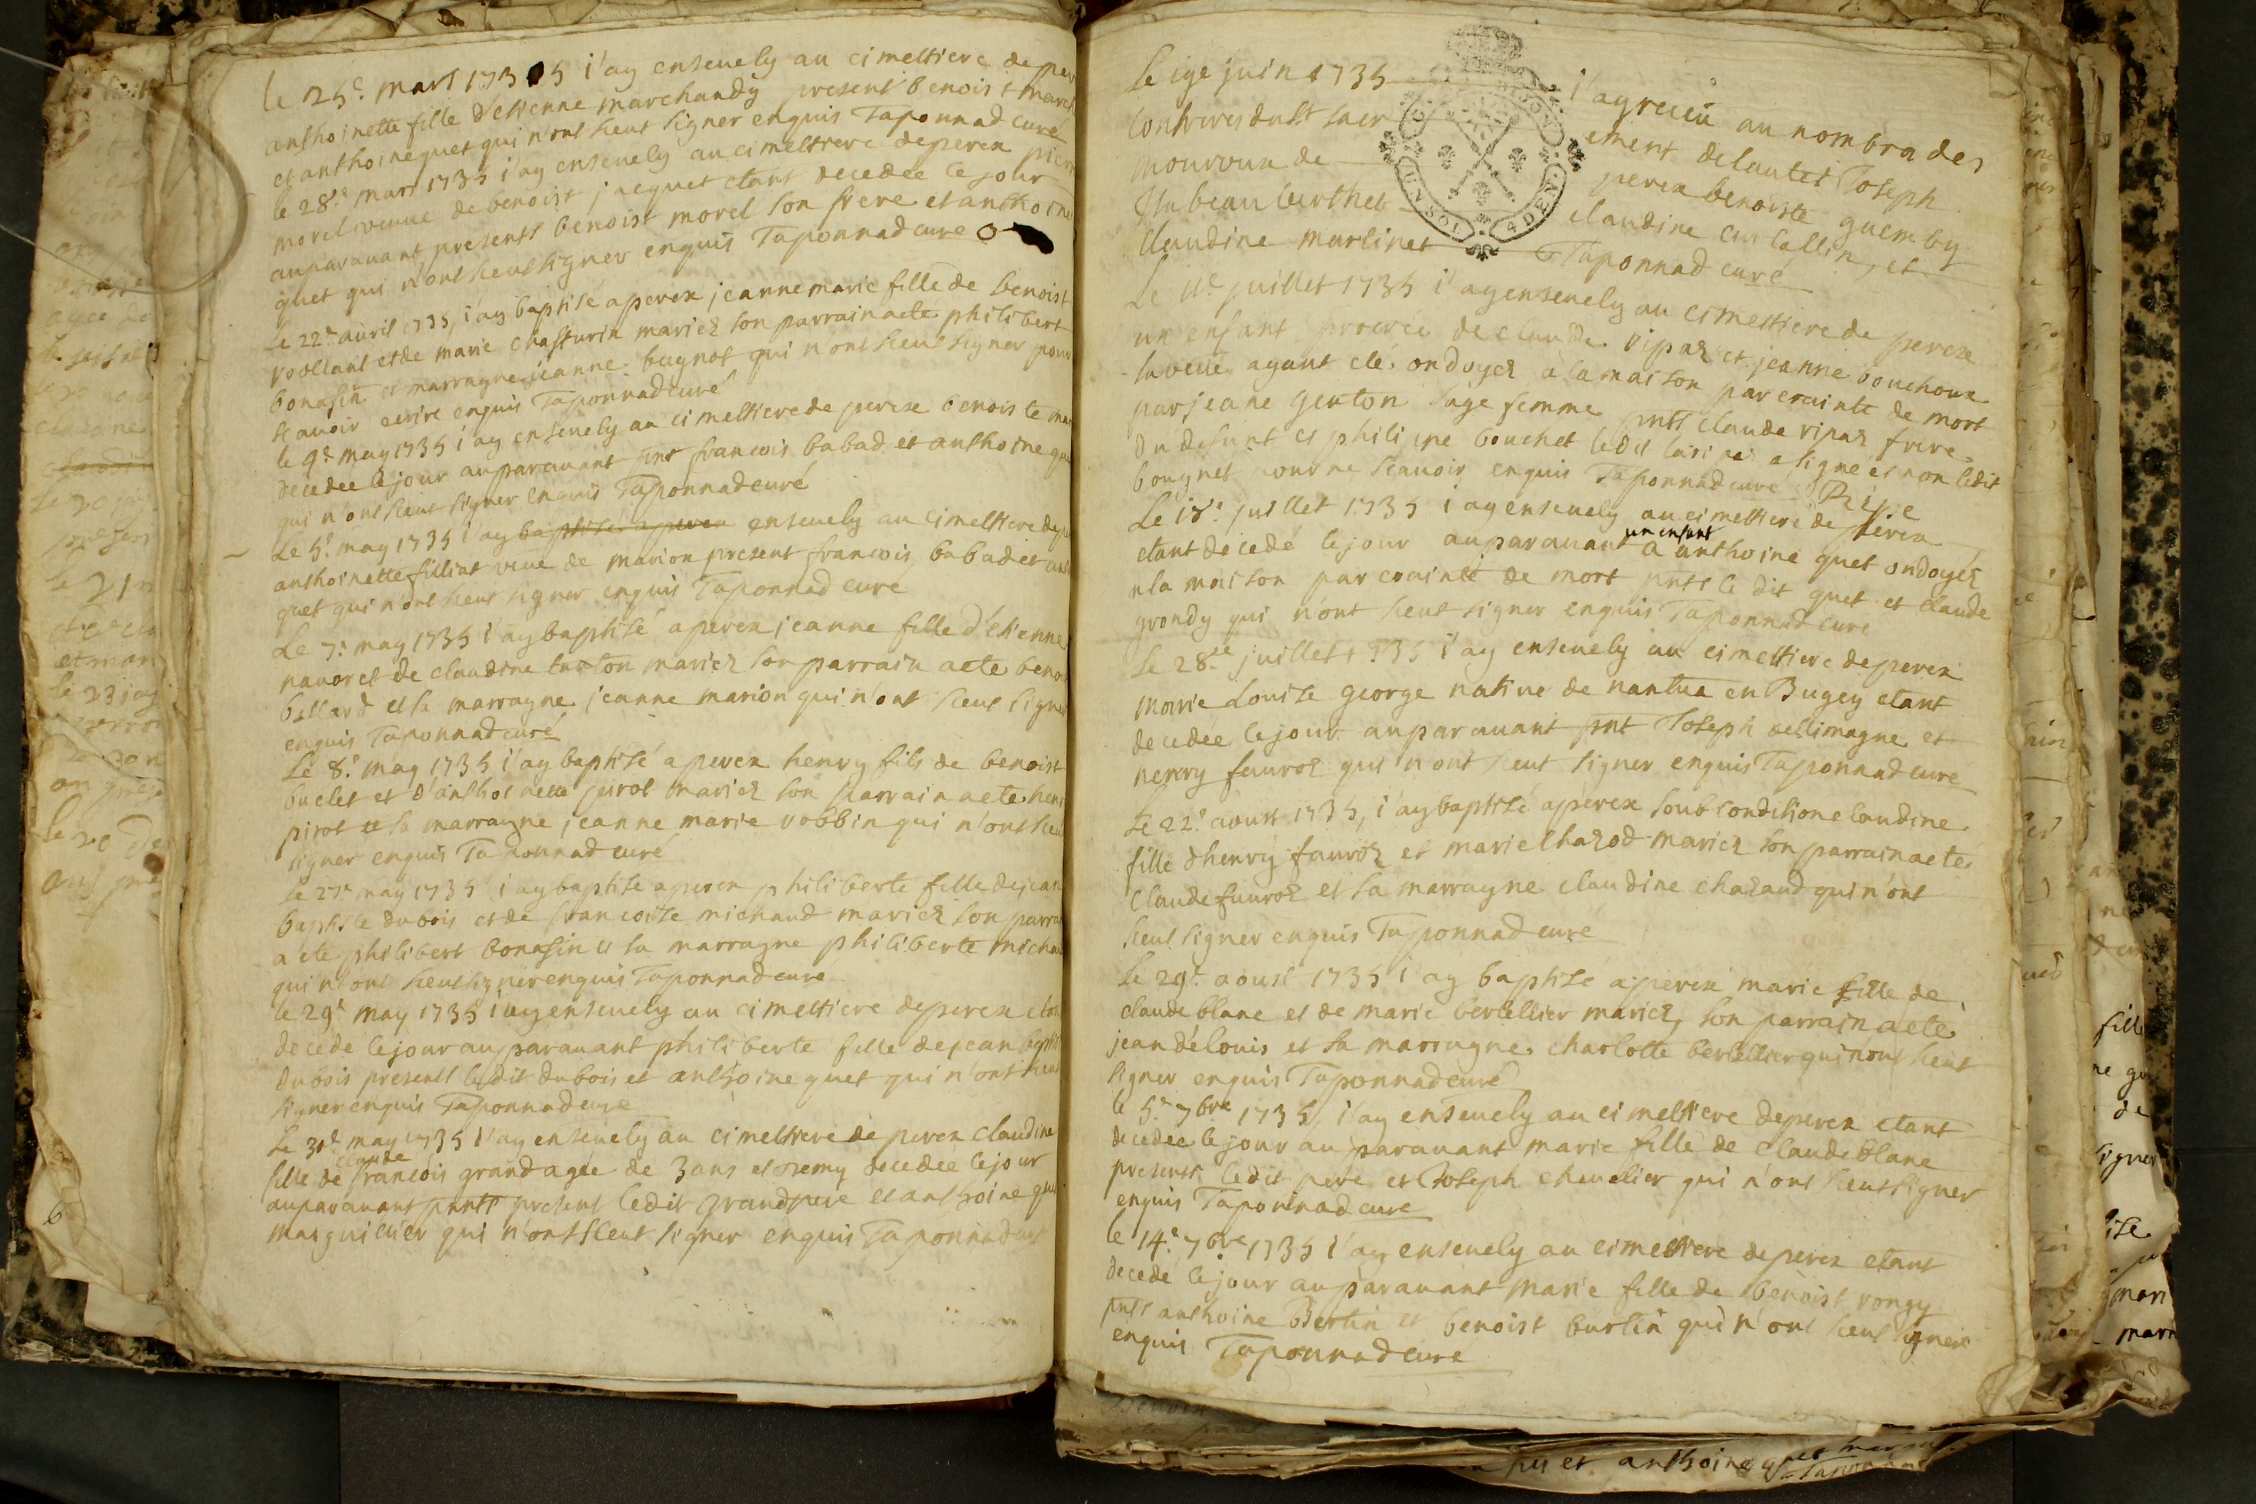 le 25e mars 1735 i'ay enseuely au cimettiere de per
anthoinette fille d'etienne marchandy present benoist march
et anthoine guet qui n'ont sceut signer enquis Taponnad curé
le 28e mars 1735 i'ay enseuely au cimettiere de perex pier
morel veuue de benoist jacquet etant decedée le jour
auparauant presents benoist morel son frere et anthoine
guet qui n'ont sceut signer enquis Taponnad curé
Le 22e auril 1735, i'ay baptisé a perex jeanne marie fille de benoist
voollant et de marie chasturin mariez son parrain a eté philibert
bonasin et marragne jeanne bugnot qui n'ont sceut signer pour
scauoir ecrire enquis Taponnad curé
le 9e may 1735 i'ay enseuely au cimettiere de perex benoiste mar
decedée le jour auparauant pnt francois babad et anthoine gu
qui n'ont sceut signer enquis Taponnad curé
Le 5e may 1735 i'ay baptisé a perex enseuely au cimettiere de p
anthoinette filliat veue de marion present francois babad et ant
guet qui n'ont sceut signer enquis Taponnad curé
Le 7e may 1735 i'ay baptisé a perex jeanne fille d'etienne
nauoret de claudine turton mariez son parrain a eté beno
billard et sa marragne jeanne marion qui n'ont sceut signer
enquis Taponnad curé
Le 8e may 1735 i'ay baptisé a perex henry fils de benoist
buclet et d'anthoinette pirot mariez son parrain a eté hen
pirot et sa marragne jeanne marie robbin qui n'ont sceu
signer enquis Taponnad curé
le 27e may 1735 i'ay baptisé a perex philiberte fille de jean
baptiste dubois et de francoise michaud mariez son parra
a eté philibert bonasin et sa marragne philiberte micha
qui n'ont sceut signer enquis Taponnad curé
le 29e may 1735 i'ay enseuely au cimettiere de perex etan
decedé le jour auparauant philiberte fille de jean baptis
dubois presents ledit dubois et anthoine guet qui n'ont sceut
signer enquis Taponnad curé
Le 31e may 1735 i'ay enseuely au cimettiere de perex claudine
claude
fille de francois grand agée de 3 ans et demy decedée le jour
auparauant pnts present ledit grand pere et anthoine gu
marguillier qui n'ont sceut signer enquis Taponnad curé
6
Le 19e juin 1735 i'ay receu au nombra des
confreres du St sacrement de lautel Joseph
mouroux de perex benoiste guemby
Isabeau berthet claudine cus cattin, et
claudine martinet Taponnad curé
DIJON 4 DEN.
Le 11e juillet 1735 i'ay enseuely au cimettiere de perex
un enfant procréé de claude ripaz et jeanne bouchoux
sa veue ayant eté ondoyez a la maison par crainte de mort
par jeane genton sage femme pnts claude ripaz frere
du defunt et philipne bouchet ledit a signé et non ledit
bougnet pour ne scauoir enquis Taponnad curé Ripe
Le 18e juillet 1735 i'ay enseuely au cimettiere de perex
un enfant
etant decedé le jour auparauant a anthoine guet ondoyez
a la maison par crainte de mort pnts le dit guet et claude
grondy qui n'ont sceut signer enquis Taponnad curé
Le 28e juillet 1735 i'ay enseuely au cimettiere de perex
marie Louise george natiue de nantua en Bugey etant
decedée le jour auparauant pnt Joseph dellimagne et
henry fauroz qui n'ont sceut signer enquis Taponnad curé
Le 22e aoust 1735, i'ay baptisé a perex sous condition claudine
fille d'henry fauroz et marie chazod mariez son parrain a eté
Claude fauroz et sa marragne claudine chazaud qui n'ont
sceut signer enquis Taponnad curé
Le 29e aoust 1735 i'ay baptisé a perex marie fille de
claude blanc et de marie bertellier mariez, son parrain a eté
jean délouis et sa marragne charlotte bertellier qui n'ont sceut
signer enquis Taponnad curé
le 5e 7bre 1735 i'ay enseuely au cimettiere de perex etant
decedée le jour auparauant marie fille de claude blanc
presents ledit père et Joseph cheuelier qui n'ont sceut signer
enquis Taponnad curé
le 14e 7bre 1735 i'ay enseuely au cimettiere de perex etant
decedé le jour auparauant marie fille de benoist rongy
pnts anthoine Bertin et benoist burtin qui n'ont sceut signer
enquis Taponnad curé